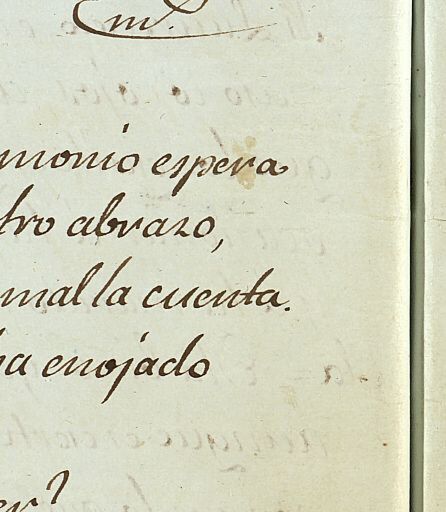 m.
monio espera
tro abrazo,
mal la cuenta.
ha enojado
er?